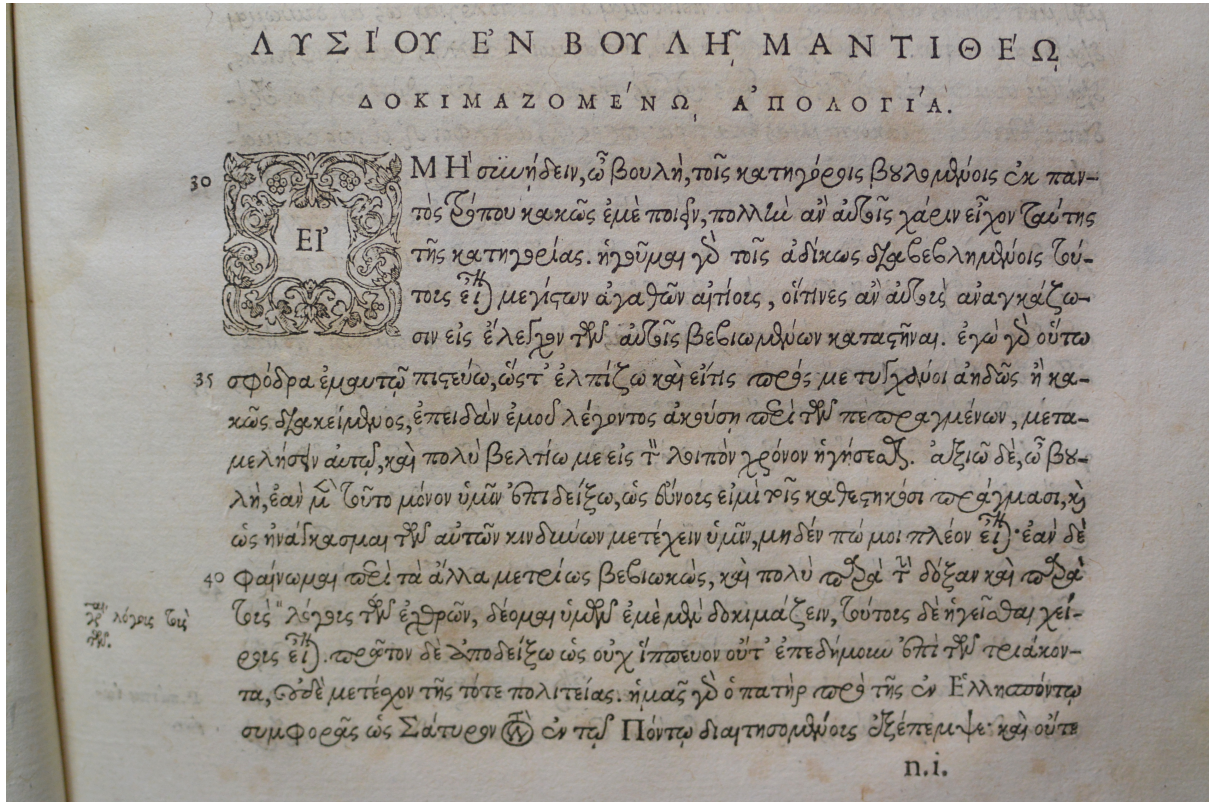 ΛΥΣΙ´ΟΥ Ε᾽Ν ΒΟΥΛῌ͂ ΜΑΝΤΙΘΕ´ῼ
ΔΟΚΙΜΑΖΟΜΕ´Νῼ Α᾽ΠΟΛΟΓΙ´Α.
30 ΕΙ᾽ ΜΗ` συνῄδειν, ὦ βουλὴ, τοῖς κατηγόροις βουλομένοις ἐκ παν-
τὸς τρόπου κακῶς ἐμὲ ποιεῖν, πολλὴν ἂν αὐτοῖς χάριν εἶχον ταύτης
τῆς κατηγορίας. ἡγοῦμαι γὰρ τοῖς ἀδίκως διαβεβλημένοις τού-
τους εἶναι μεγίστων ἀγαθῶν αἰτίους, οἵτινες ἂν αὐτοὺς ἀναγκάζω-
σιν εἰς ἔλεγχον τῶν αὐτοῖς βεβιωμένων καταστῆναι. ἐγὼ γὰρ οὕτω
35 σφόδρα ἐμαυτῷ πιστεύω, ὥστ᾽ ἐλπίζω καὶ εἴτις πρός με τυγχάνει ἀηδῶς ἢ κα-
κῶς διακείμενος, ἐπειδὰν ἐμοῦ λέγοντος ἀκούσῃ περὶ τῶν πεπραγμένων, μετα-
μελήσειν αὐτῷ, καὶ πολὺ βελτίω με εἰς τὸν λοιπὸν χρόνον ἡγήσεσθαι. ἀξιῶ δὲ, ὦ βου-
λὴ, ἐὰν μὲν τοῦτο μόνον ὑμῖν ἐπιδείξω, ὡς εὔνους εἰμὶ τοῖς καθεστηκόσι πράγμασι, καὶ
ὡς ἠνάγκασμαι τῶν αὐτῶν κινδύνων μετέχειν ὑμῖν, μηδέν πώ μοι πλέον εἶναι· ἐὰν δὲ
40 φαίνωμαι περὶ τὰ ἄλλα μετρίως βεβιωκὼς, καὶ πολὺ παρὰ τὴν δόξαν καὶ παρὰ
τοὺς " λόγους τῶν ἐχθρῶν, δέομαι ὑμῶν ἐμὲ μὲν δοκιμάζειν, τούτους δὲ ἡγεῖσθαι χεί-
ρους εἶναι. πρῶτον δὲ ἀποδείξω ὡς οὐχ ἵππευον οὔτ᾽ ἐπεδήμουν ἐπὶ τῶν τριάκον-
τα, οὐδὲ μετέσχον τῆς τότε πολιτείας. ἡμᾶς γὰρ ὁ πατὴρ πρὸ τῆς ἐν Ἑλλησπόντῳ
συμφορᾶς ὡς Σάτυρον τὸν ἐν τῷ Πόντῳ διαιτησομένους ἐξέπεμψε· καὶ οὔτε
n.i.
λόγους τοὺς
τῶν.